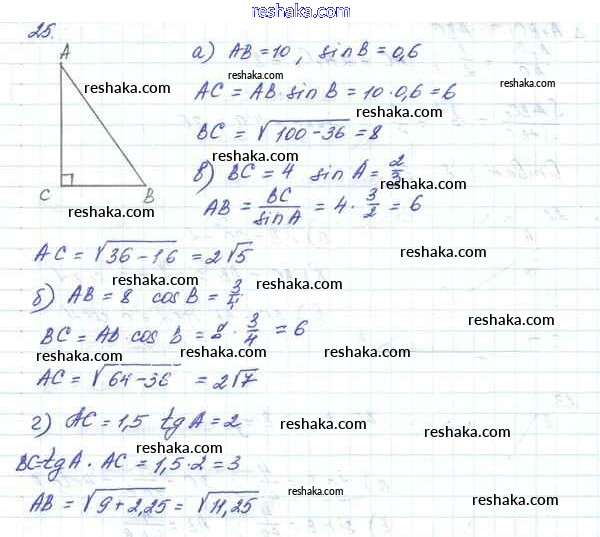 reshaka.com
25.
A
C
B
а) AB = 10, sin B = 0,6
reshaka.com
reshaka.com
AC = AB · sin B = 10 · 0,6 = 6
reshaka.com
BC = √100 - 36 = 8
reshaka.com
в) BC = 4 sin A = 2/3
reshaka.com
reshaka.com
AB = BC/sin A = 4 · 3/2 = 6
reshaka.com
AC = √36 - 16 = 2√5
reshaka.com
reshaka.com
б) AB = 8 cos B = 3/4
reshaka.com
reshaka.com
BC = AB · cos B = 8 · 3/4 = 6
reshaka.com
reshaka.com
reshaka.com
AC = √64 - 36 = 2√7
reshaka.com
г) AC = 1,5 tg A = 2
reshaka.com
reshaka.com
BC = tg A · AC = 1,5 · 2 = 3
reshaka.com
AB = √9 + 2,25 = √11,25
reshaka.com
reshaka.com
reshaka.com